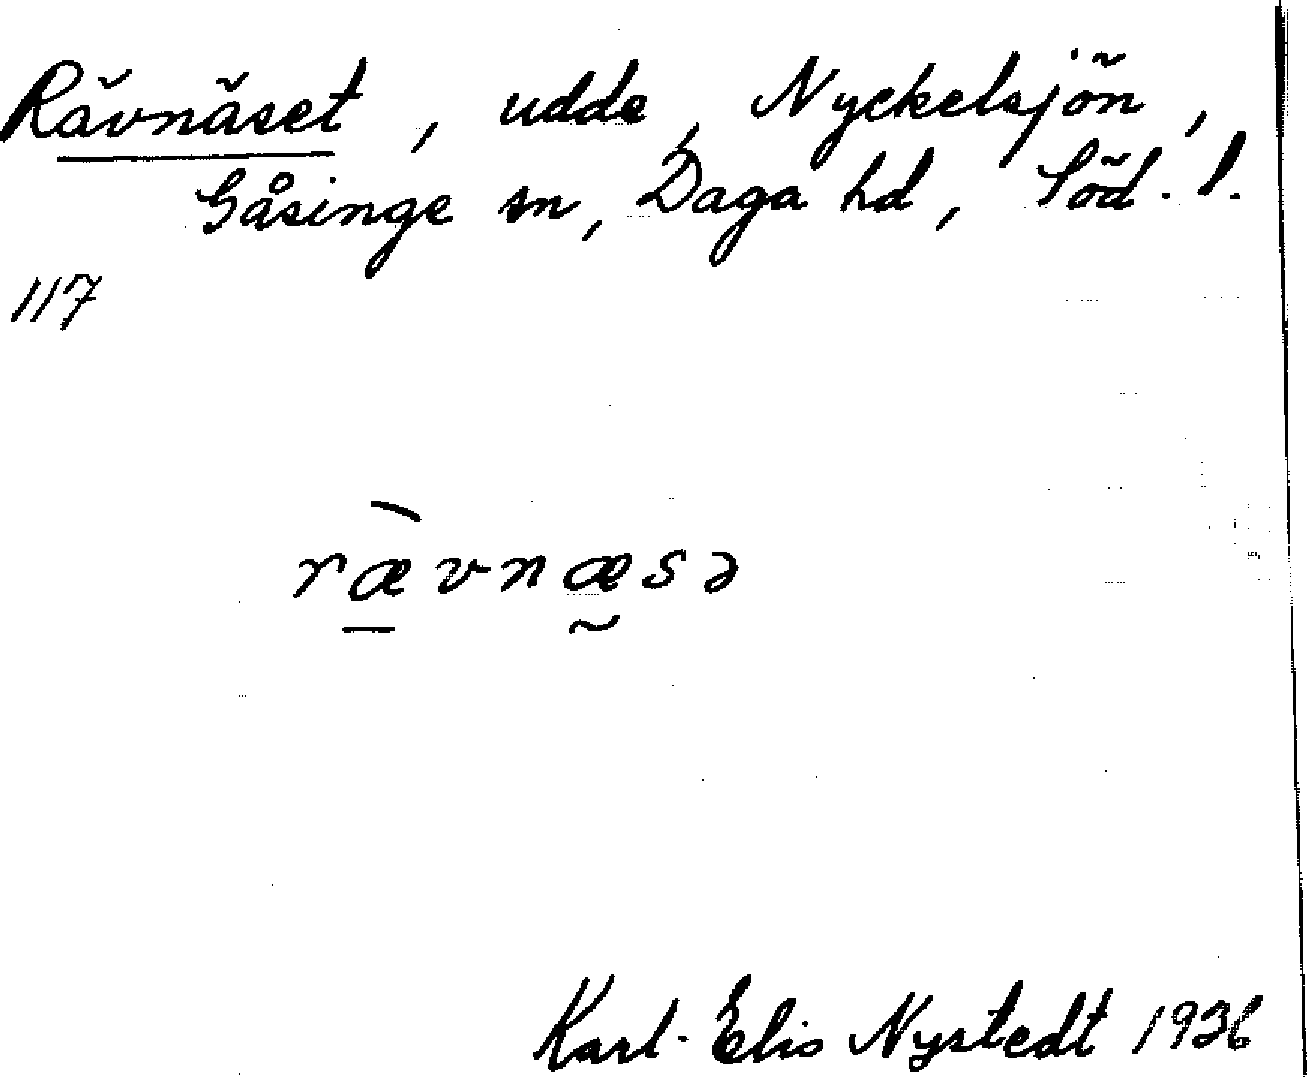 Rävnäset, udde, Nyckelsjön,
Gåsinge sn, Daga hd, Söd. l.
117
rævnæsə
Karl-Elis Nystedt 1936